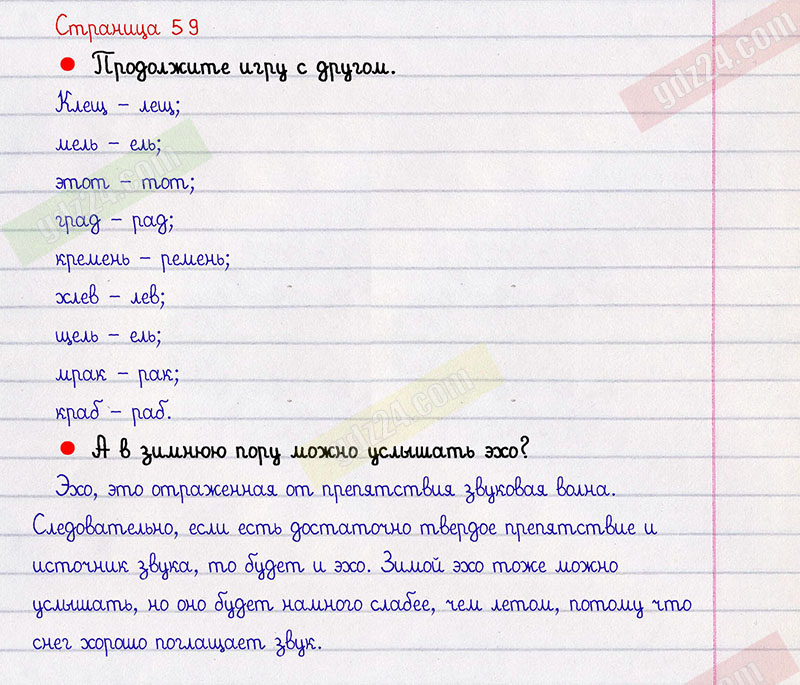 Страница 59
Продолжите игру с другом.
Клещ – лещ;
мель – ель;
этот – тот;
град – рад;
кремень – ремень;
хлев – лев;
щель – ель;
мрак – рак;
краб – раб.
А в зимнюю пору можно услышать эхо?
Эхо, это отраженная от препятствия звуковая волна.
Следовательно, если есть достаточно твердое препятствие и
источник звука, то будет и эхо. Зимой эхо тоже можно
услышать, но оно будет намного слабее, чем летом, потому что
снег хорошо поглощает звук.
gdz24.com
gdz24.com
gdz24.com